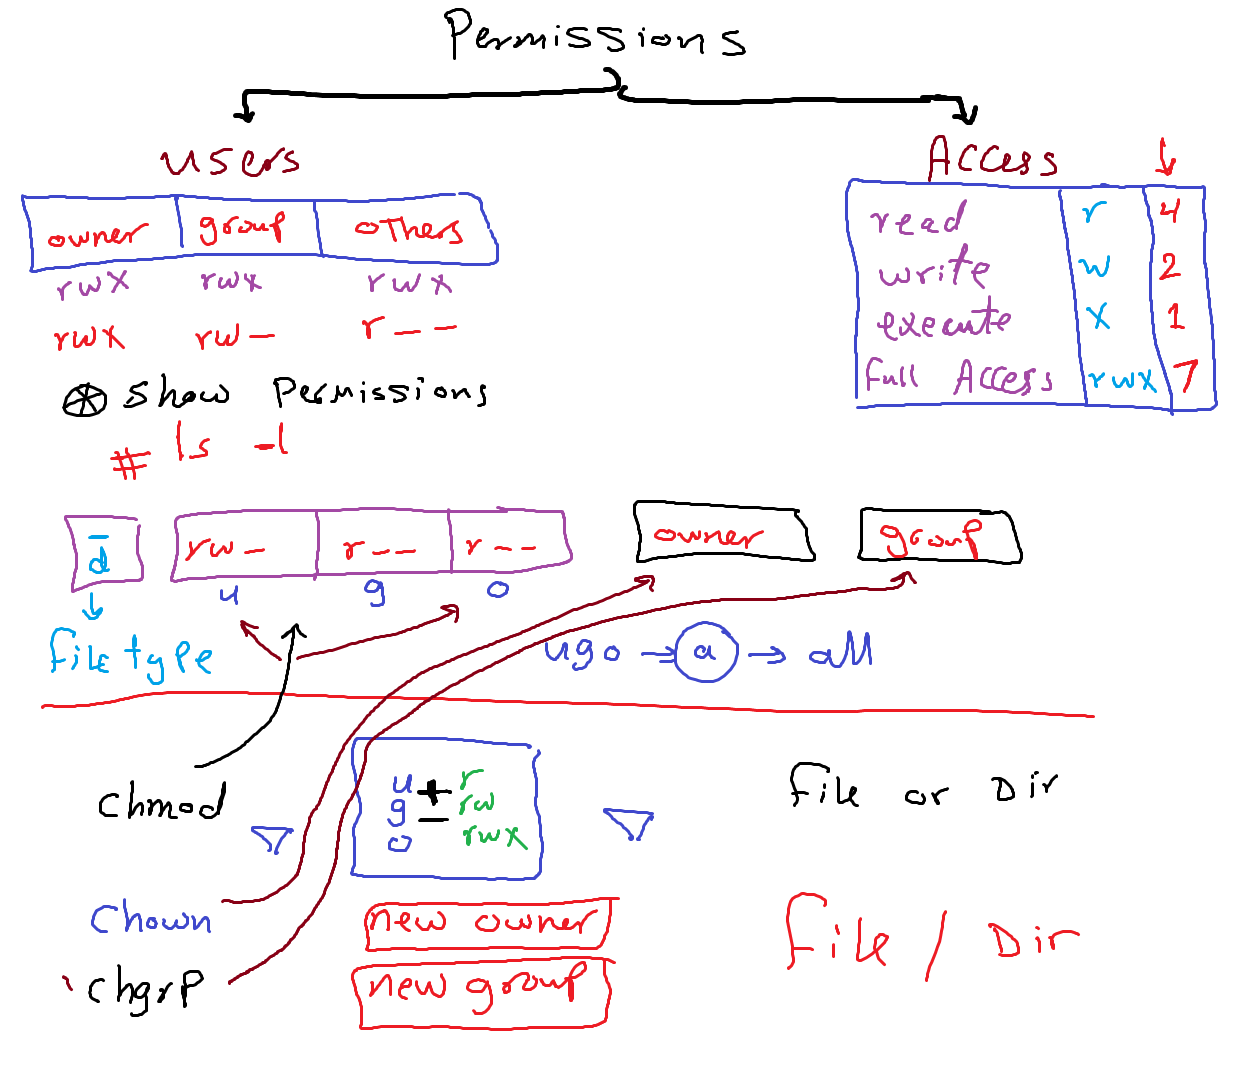 Permissions
users
Access
owner group others
rwx rwx rwx
rwx rw- r--
read r 4
write w 2
execute x 1
Full Access rwx 7
Show Permissions
# ls -l
- d rw- r-- r-- owner group
u g o
File type
ugo → a → all
chmod u g o + - r rw rwx File or Dir
chown new owner File / Dir
chgrp new group